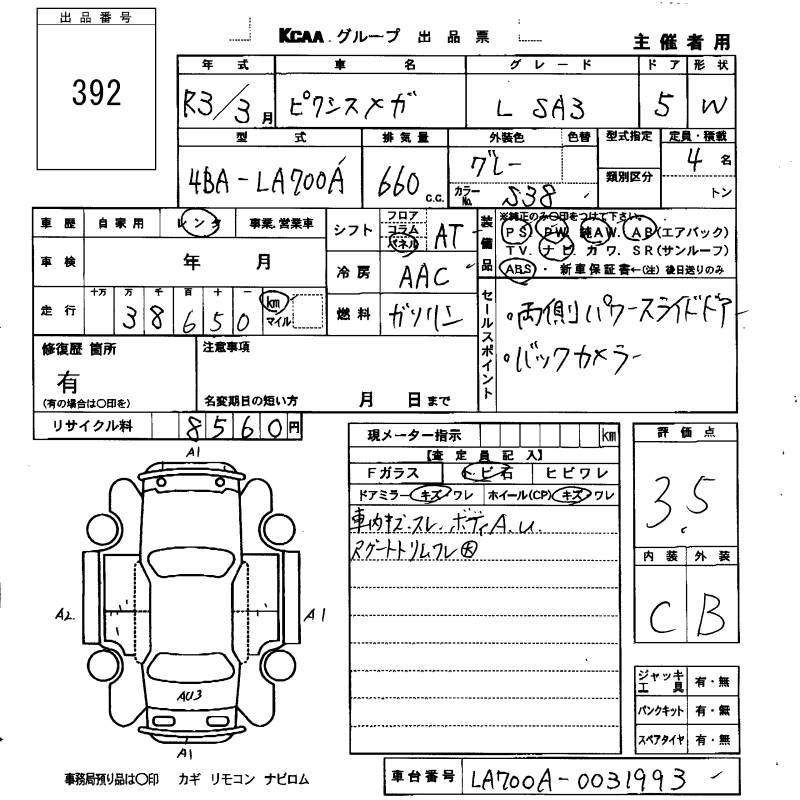 出品番号
392
KCAA グループ 出品票
主催者用
年式 車名 グレード ドア 形状
R3/3月 ピクシスメガ L SA3 5 W
型式 排気量 外装色 色替 型式指定 定員・積載
4BA-LA700A 660 C.C. グレー カラーNo. S38 類別区分 4名 トン
車歴 自家用 レンタ 事業.営業車
車検 年 月
走行 十万 万 千 百 十 一
38650 km マイル
シフト フロア コラム パネル AT
冷房 AAC
燃料 ガソリン
装備品 ※純正のみ〇印をつけて下さい。
PS PW 純AW. AB(エアバック)
TV. ナビ. カワ. SR(サンルーフ)
ABS・ 新車保証書←(注) 後日送りのみ
セールスポイント
・両側パワースライドドアー
・バックカメラー
修復歴 箇所
有
(有の場合は〇印を)
注意事項
名変期日の短い方 月 日まで
リサイクル料 8560円
現メーター指示 km
【査定員記入】
Fガラス トビ石 ヒビワレ
ドアミラー キズ・ワレ ホイール(CP) キズ・ワレ
車内キズ.スレ. ボディA.U.
評価点
3.5
内装 外装
C B
A1
A2. A1
AU3
A1
ジャッキ工具 有・無
パンクキット 有・無
スペアタイヤ 有・無
事務局預り品は〇印 カギ リモコン ナビロム
車台番号 LA700A-0031993